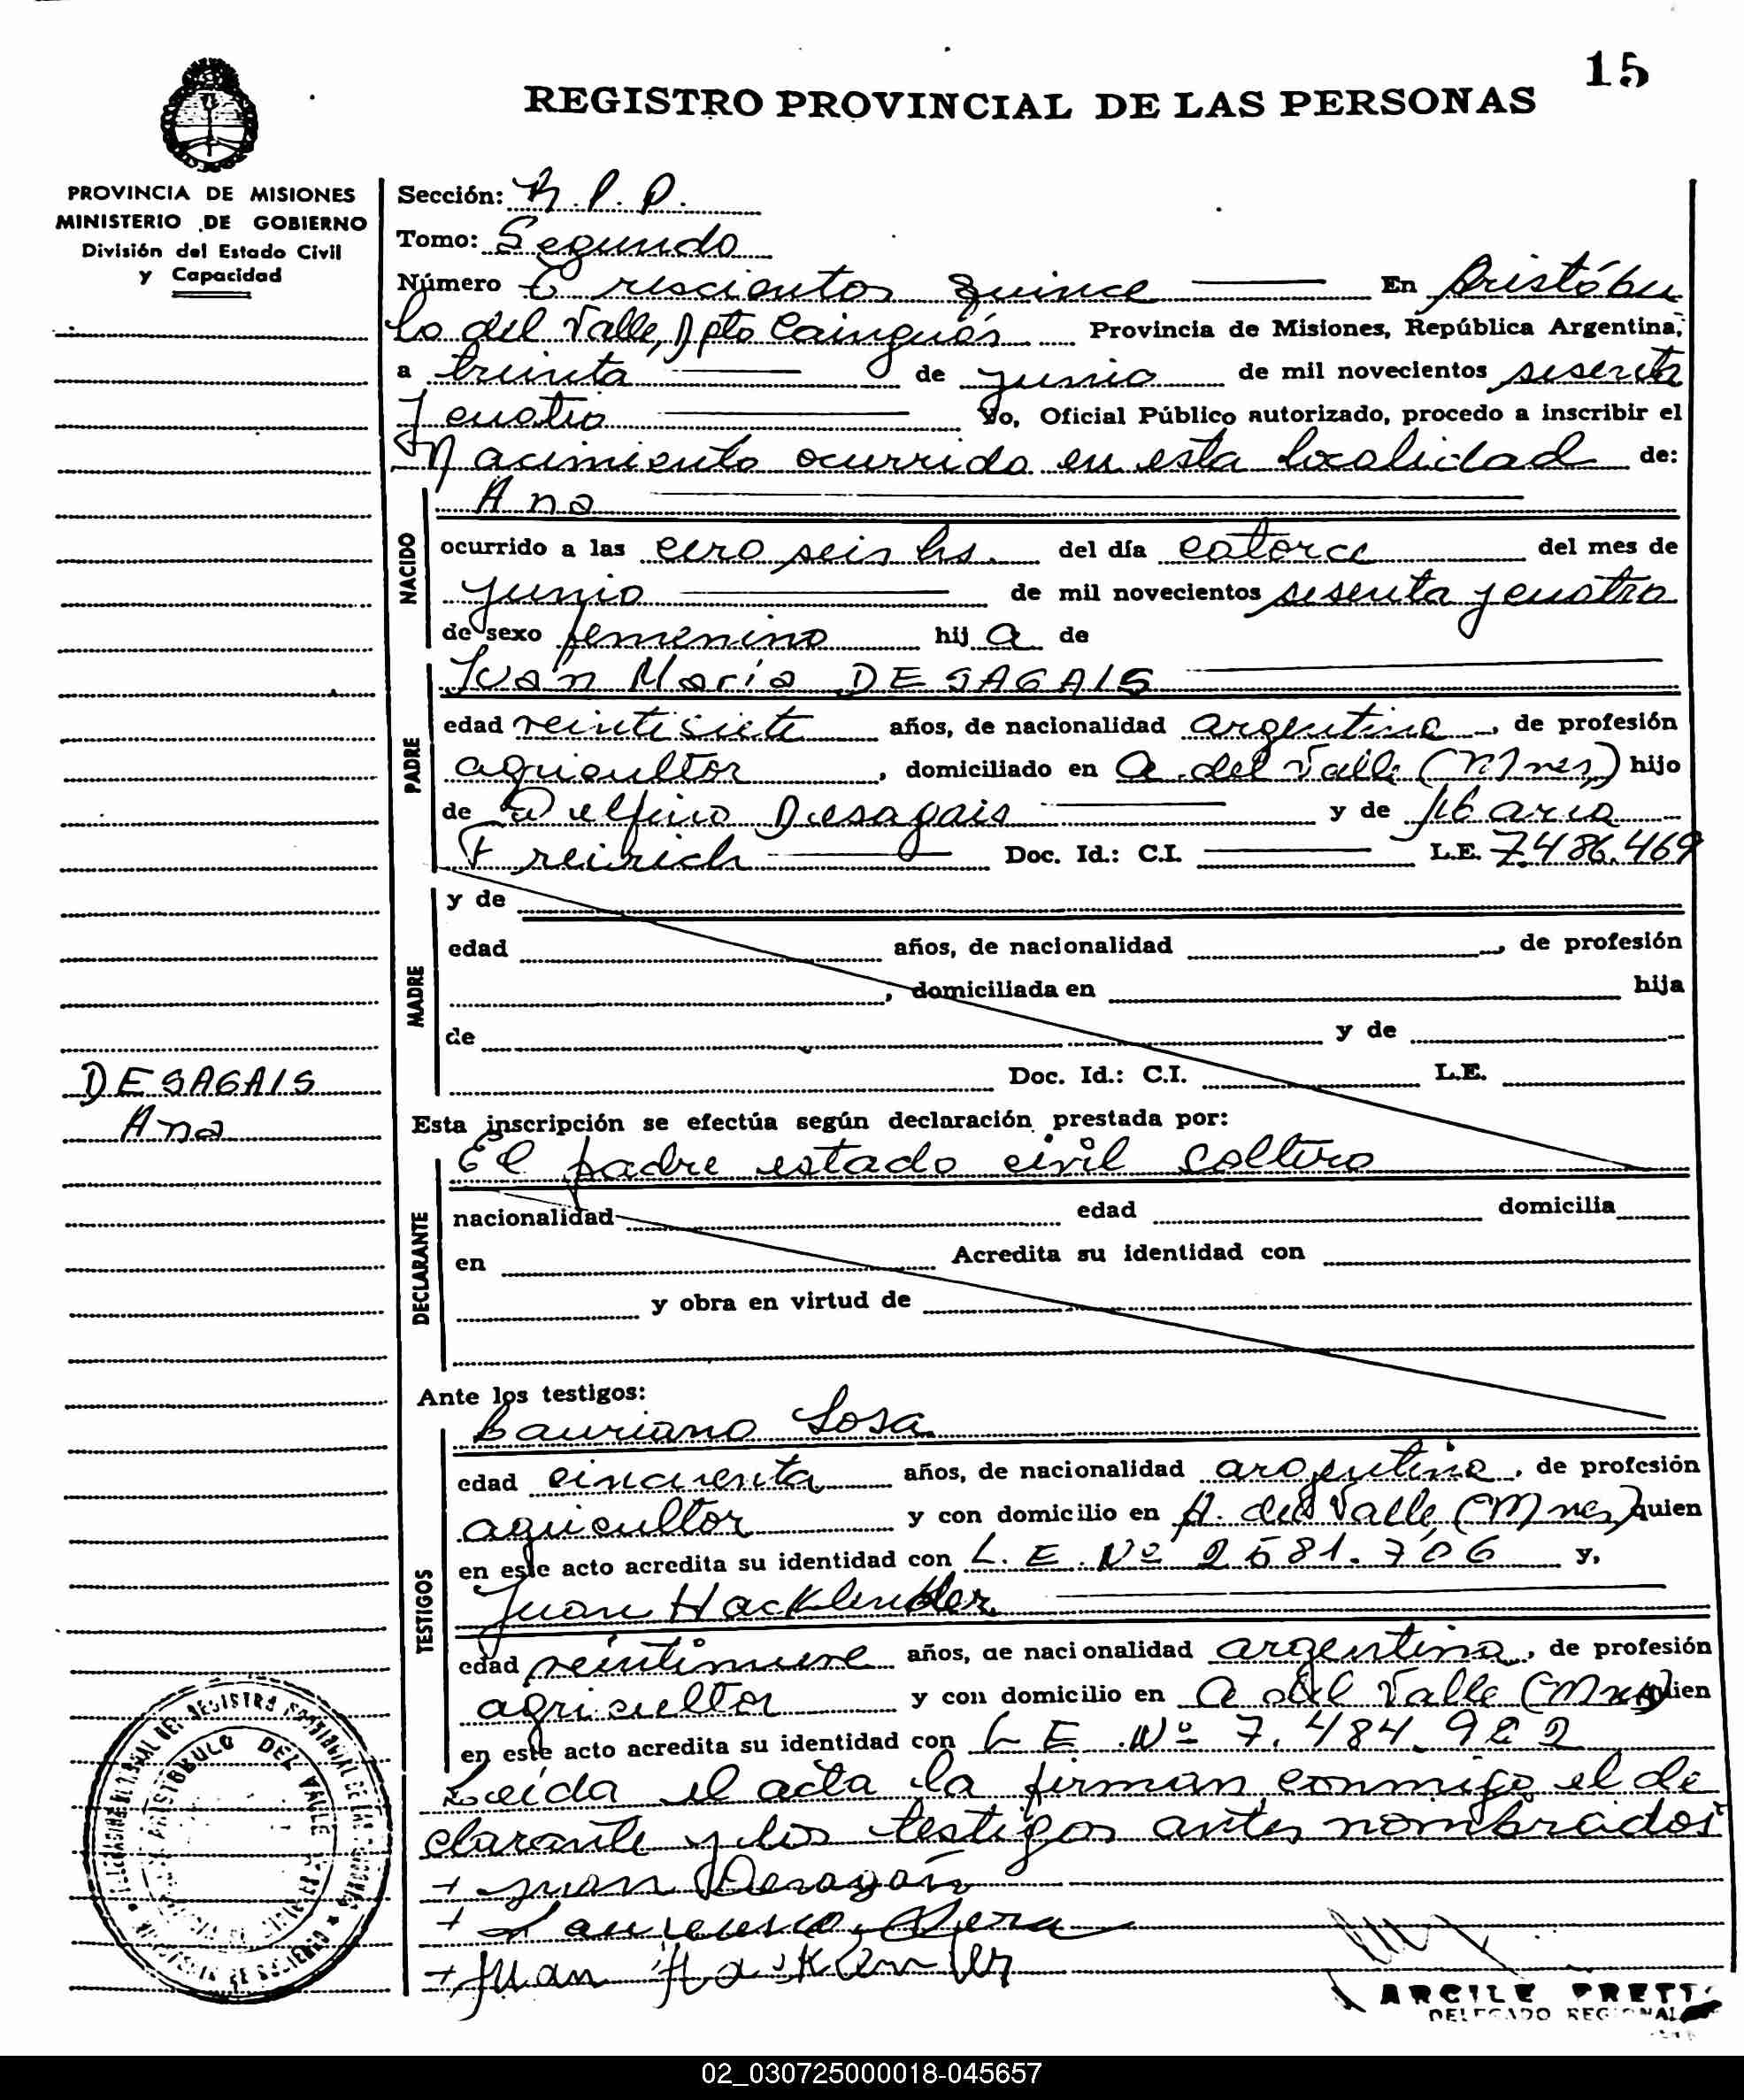 15
REGISTRO PROVINCIAL DE LAS PERSONAS
PROVINCIA DE MISIONES
MINISTERIO DE GOBIERNO
División del Estado Civil
y Capacidad
Sección: R.P.P.
Tomo: Segundo
Número Trescientos quince En Aristóbu
lo del Valle, Dpto Cainguás Provincia de Misiones, República Argentina,
a treinta de junio de mil novecientos sesenta
y cuatro Yo, Oficial Público autorizado, procedo a inscribir el
Nacimiento ocurrido en esta localidad de:
NACIDO
Ana
ocurrido a las cero seis hs. del día catorce del mes de
junio de mil novecientos sesenta y cuatro
de sexo femenino hij a de
PADRE
Juan María DESAGAIS
edad veintisiete años, de nacionalidad argentina, de profesión
agricultor, domiciliado en A. del Valle (Mnes) hijo
de Delfino Desagais y de María
Freirich Doc. Id.: C.I. L.E. 7.486.469
MADRE
y de
edad años, de nacionalidad , de profesión
, domiciliada en hija
de y de
Doc. Id.: C.I. L.E.
DESAGAIS
Ana
Esta inscripción se efectúa según declaración prestada por:
DECLARANTE
El padre estado civil soltero
nacionalidad edad domicilia
en Acredita su identidad con
y obra en virtud de
Ante los testigos:
TESTIGOS
Lauriano Sosa
edad cincuenta años, de nacionalidad argentina, de profesión
agricultor y con domicilio en A. del Valle (Mnes) quien
en este acto acredita su identidad con L.E. Nº 2581.706 y,
Juan Hacklender
edad veintinueve años, de nacionalidad argentina, de profesión
agricultor y con domicilio en A del Valle (Mnes) quien
en este acto acredita su identidad con L E Nº 7.484.982
Leída el acta la firman conmigo el de
clarante y los testigos antes nombrados
+ Juan
+
+ Juan
ARISTOBULO DEL VALLE
DELEGADO REGIONAL
02_030725000018-045657